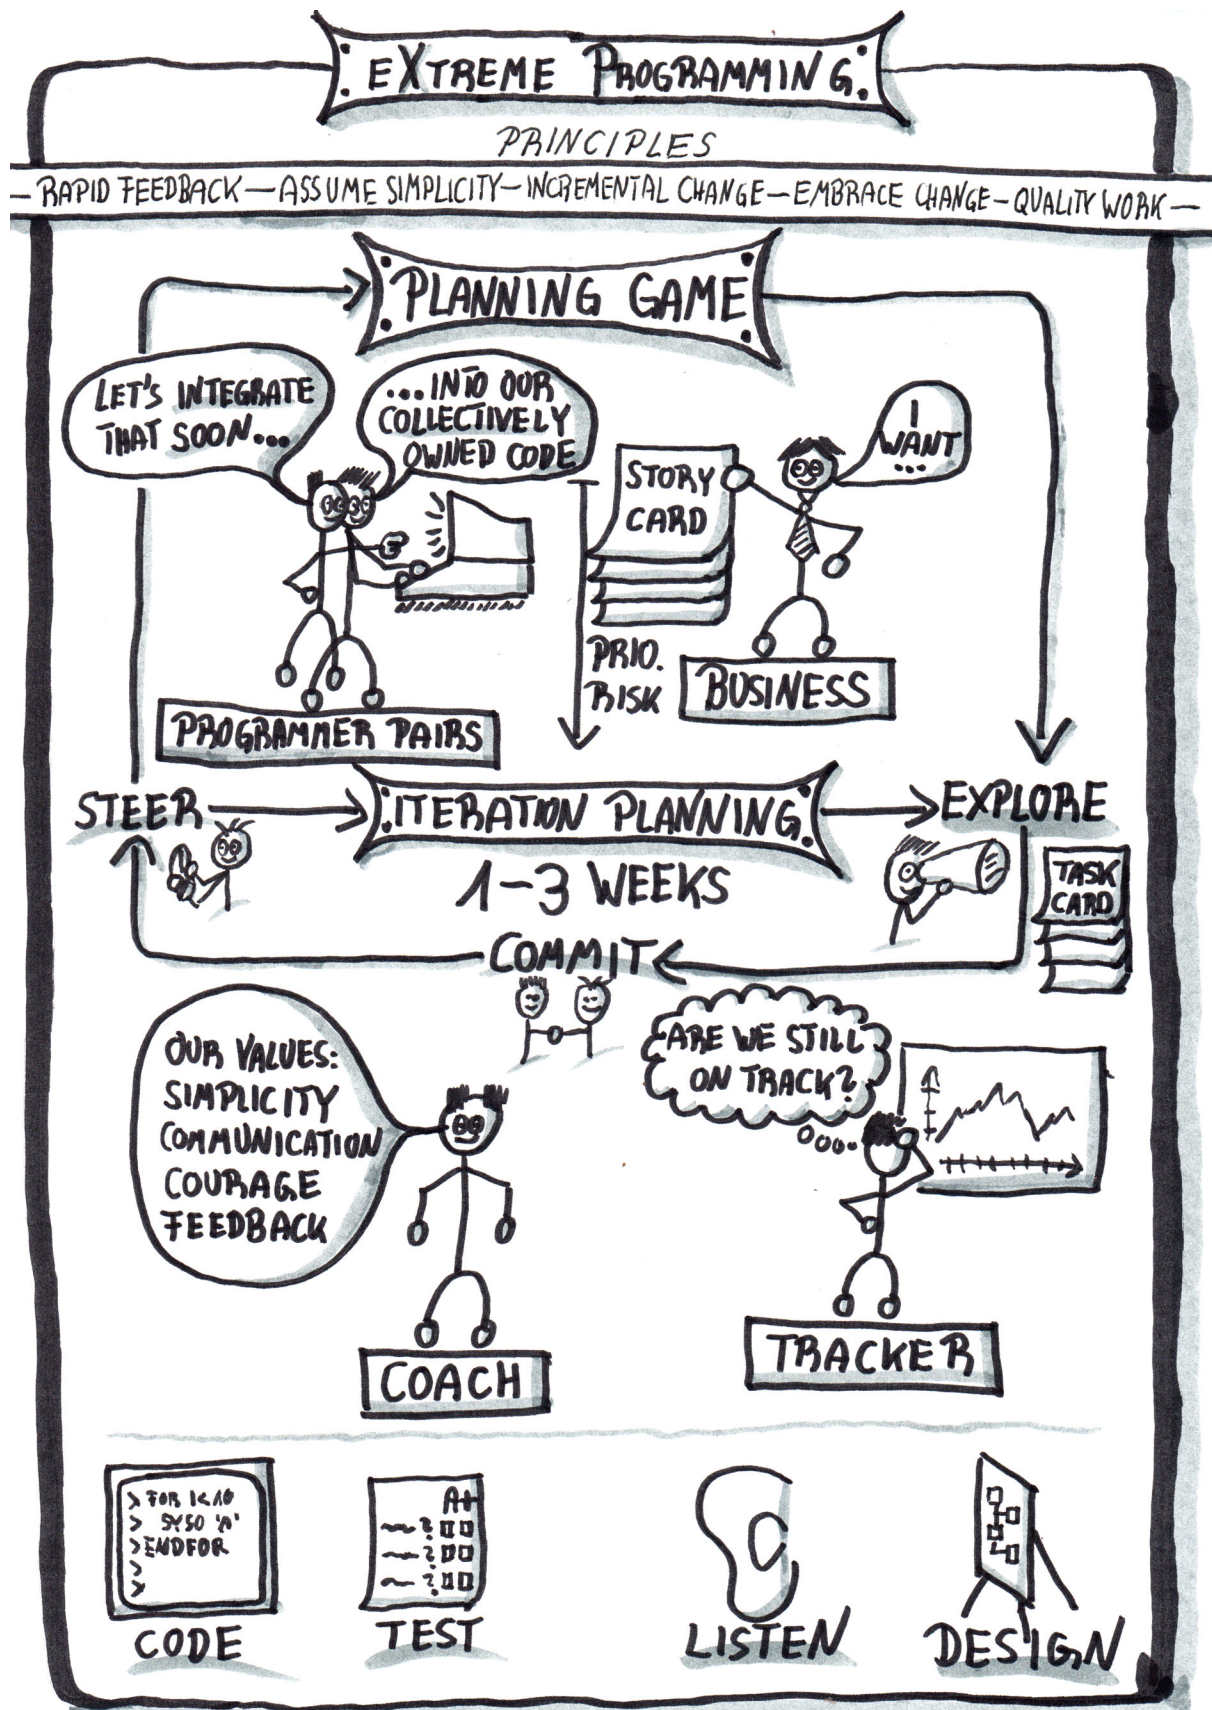 EXTREME PROGRAMMING
PRINCIPLES
— RAPID FEEDBACK — ASSUME SIMPLICITY — INCREMENTAL CHANGE — EMBRACE CHANGE — QUALITY WORK —
PLANNING GAME
LET'S INTEGRATE
THAT SOON...
...INTO OUR
COLLECTIVELY
OWNED CODE
STORY
CARD
I
WANT
...
PRIO.
RISK
PROGRAMMER PAIRS
BUSINESS
STEER
ITERATION PLANNING
EXPLORE
1-3 WEEKS
TASK
CARD
COMMIT
OUR VALUES:
SIMPLICITY
COMMUNICATION
COURAGE
FEEDBACK
ARE WE STILL
ON TRACK?
COACH
TRACKER
> FOR I<10
> SYSO 'A'
> ENDFOR
>
>
A+
?
?
?
CODE
TEST
LISTEN
DESIGN